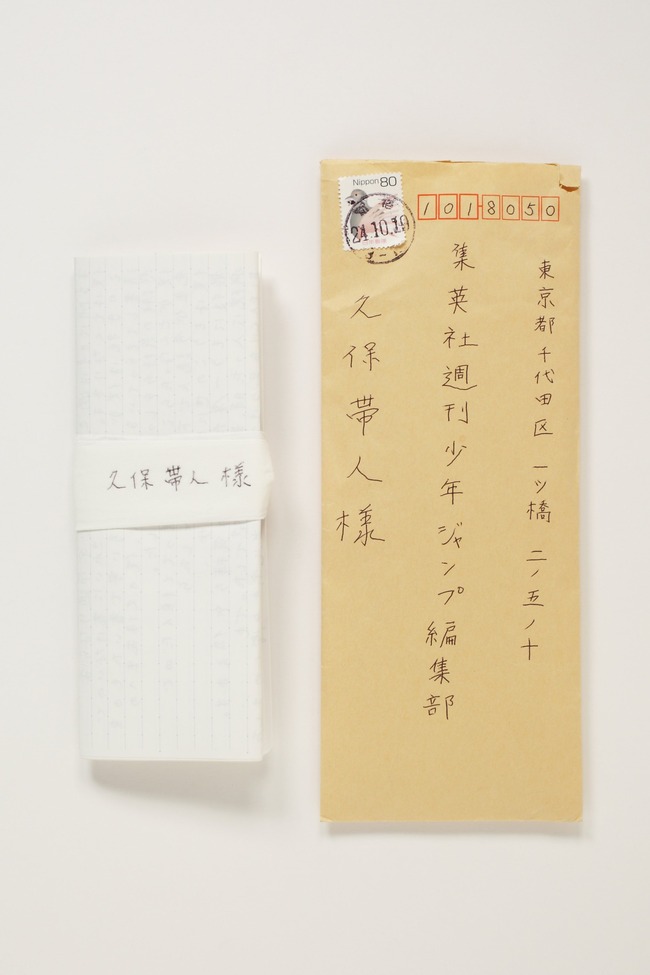 久保帯人様
Nippon80
24.10.19
1018050
東京都千代田区一ツ橋二ノ五ノ十
集英社週刊少年ジャンプ編集部
久保帯人様